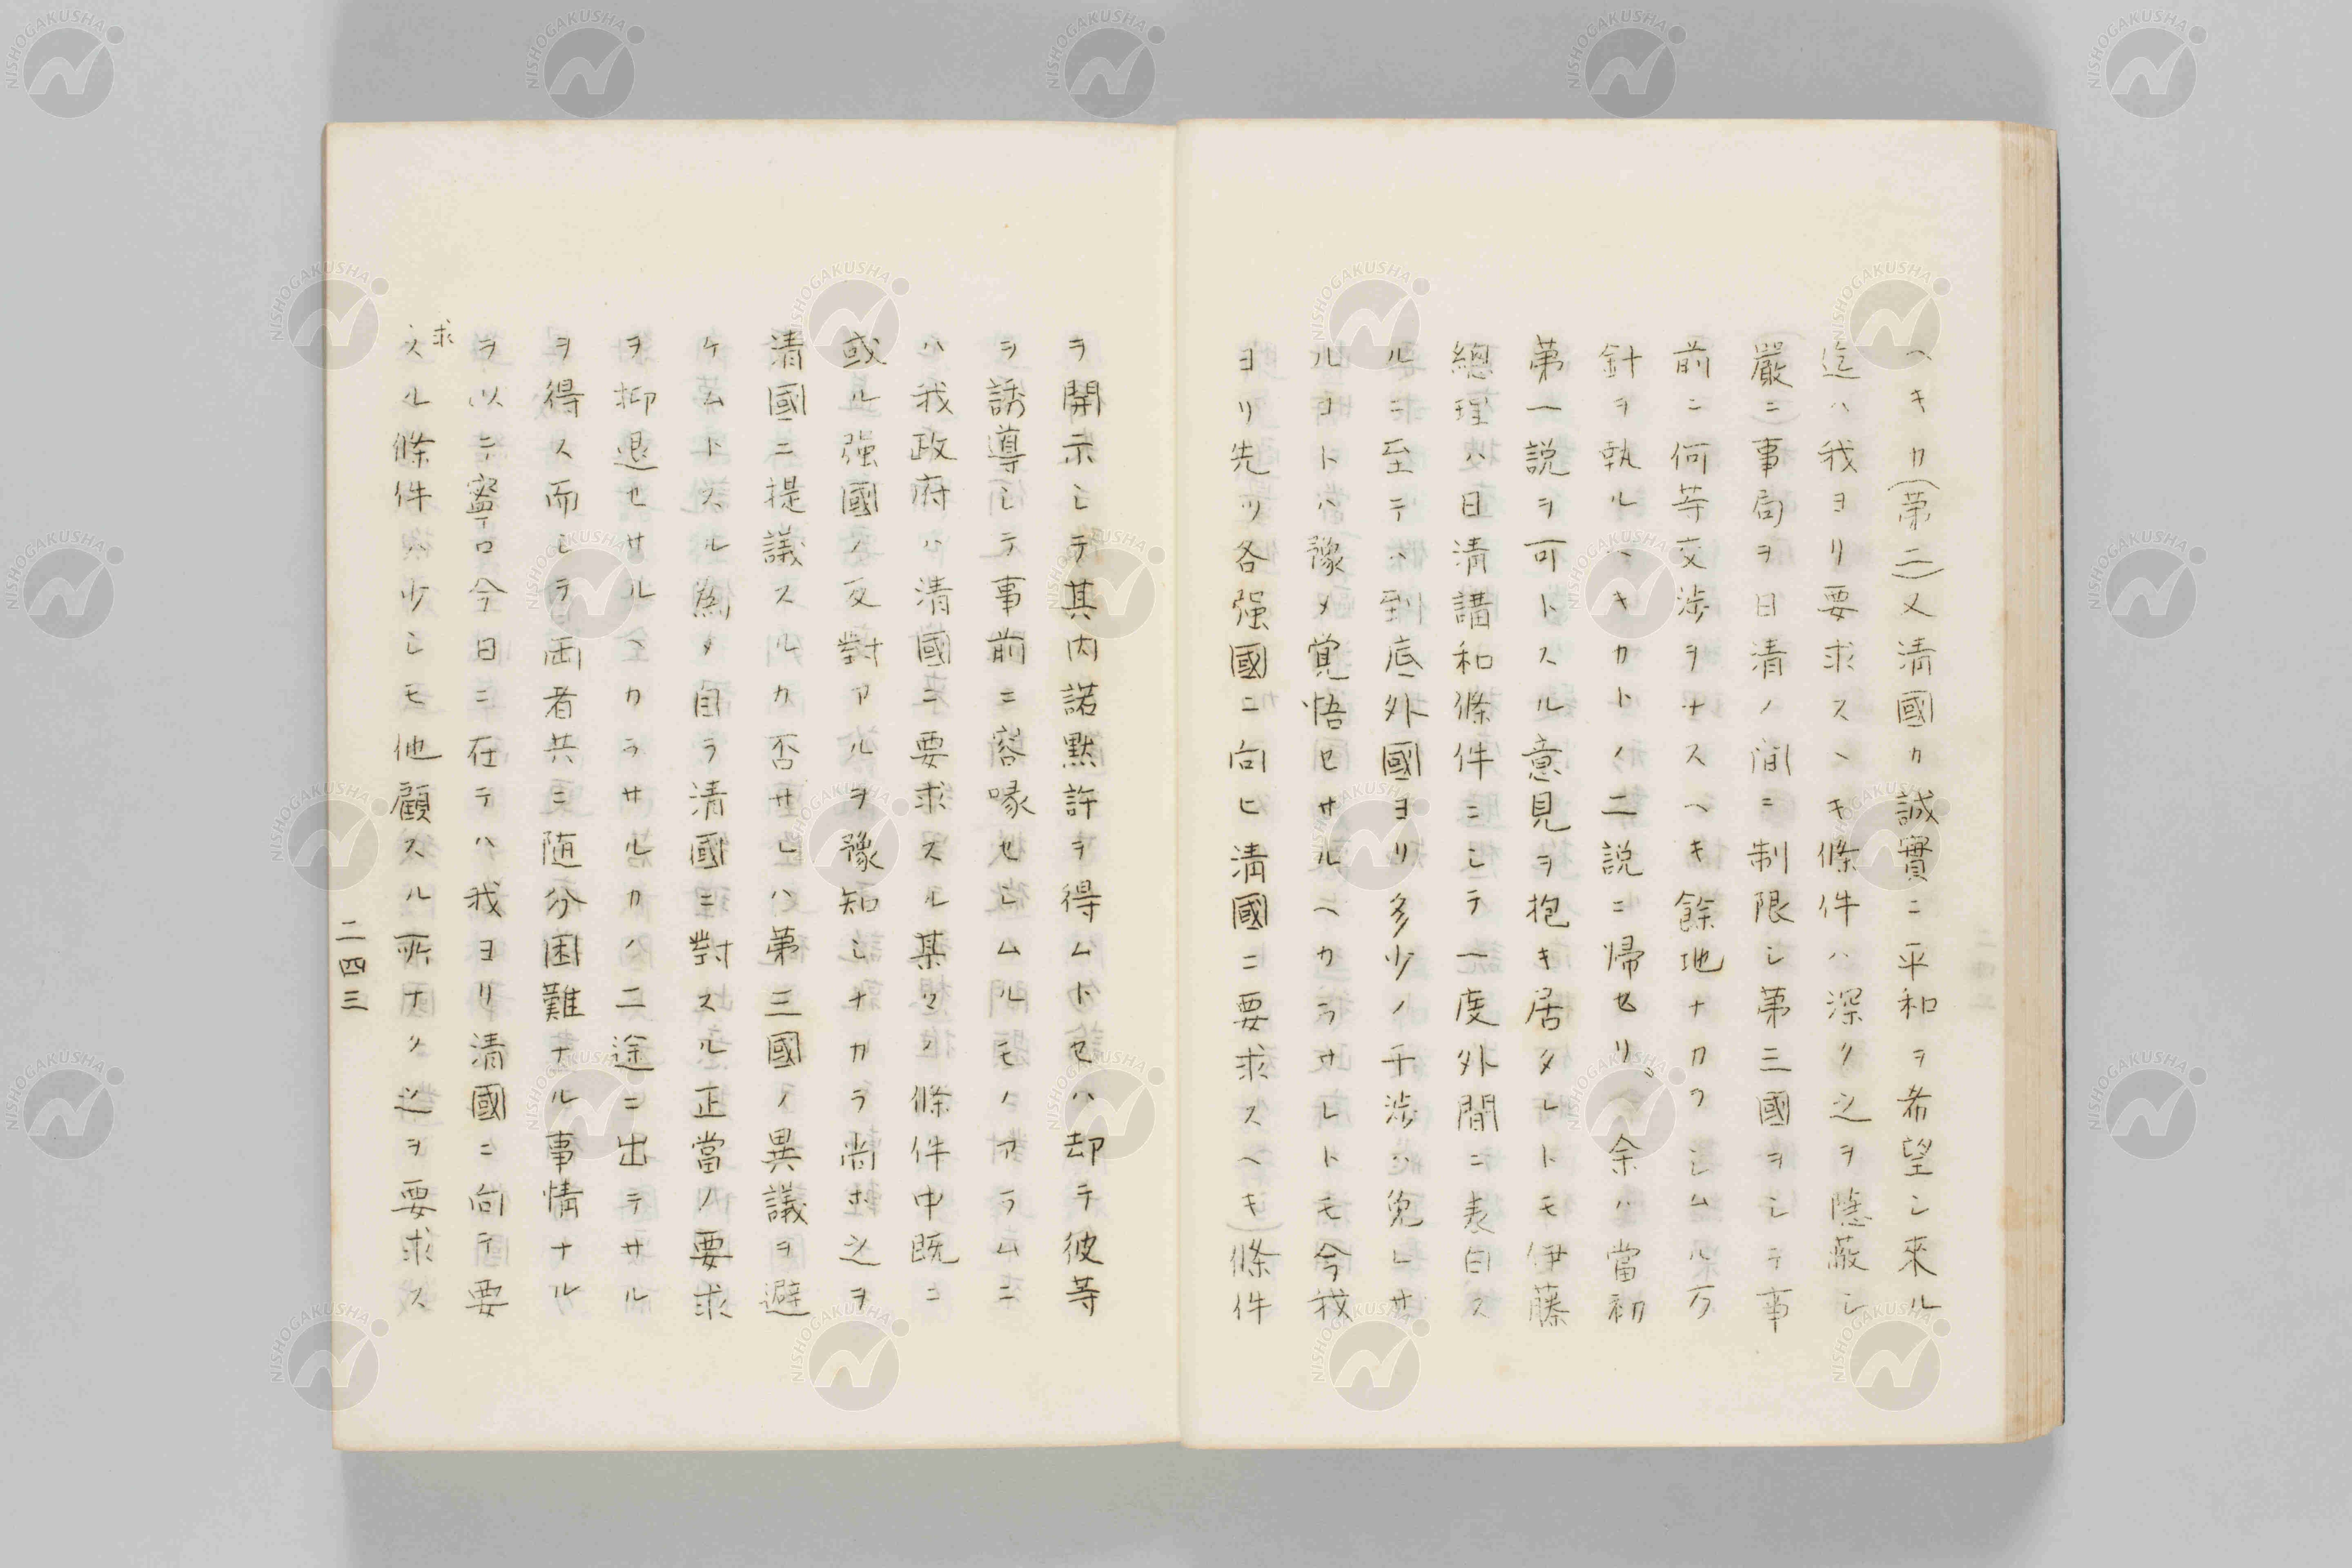 ヘキカ(第二)又清國カ誠實ニ平和ヲ希望シ來ル
迄ハ我ヨリ要求スヘキ條件ハ深ク之ヲ隱蔽シ
嚴ニ事局ヲ日清ノ間ニ制限シ第三國ヲシテ事
前ニ何等交渉ヲ中スヘキ餘地ナカラシムル方
針ヲ執ルヘキカトノ二説ニ帰セリ。余ハ當初
第一説ヲ可トスル意見ヲ抱キ居タレトモ伊藤
總理ハ日清講和條件ニシテ一度外間ニ表白ス
ルニ至テハ到底外國ヨリ多少ノ干渉ハ免レサ
ルヿトハ豫メ覚悟セサルヘカラサレトモ今我
ヨリ先ツ各强國ニ向ヒ清國ニ要求スヘキ條件
ヲ開示シテ其内諾黙許ヲ得ムトセハ却テ彼等
ヲ誘導シテ事前ニ容喙セシムルモノアラムニ
ハ我政府ハ清國ニ要求スル某々ノ條件中既ニ
或ル强國ノ反對アルヲ豫知シナカラ尚ホ之ヲ
清國ニ提議スルカ否サレハ第三國ノ異議ヲ避
ケムトスル為メ自ラ清國ニ對スル正當ノ要求
ヲ抑退セサルヘカラサルカノ二途ニ出テサル
ヲ得ス而シテ両者共ニ随分困難ナル事情ナル
ヲ以テ寧ロ今日ニ在テハ我ヨリ清國ニ向テ要
求
スル條件ハ少シモ他顧スル所ナク之ヲ要求ス
二四三
NISHOGAKUSHA